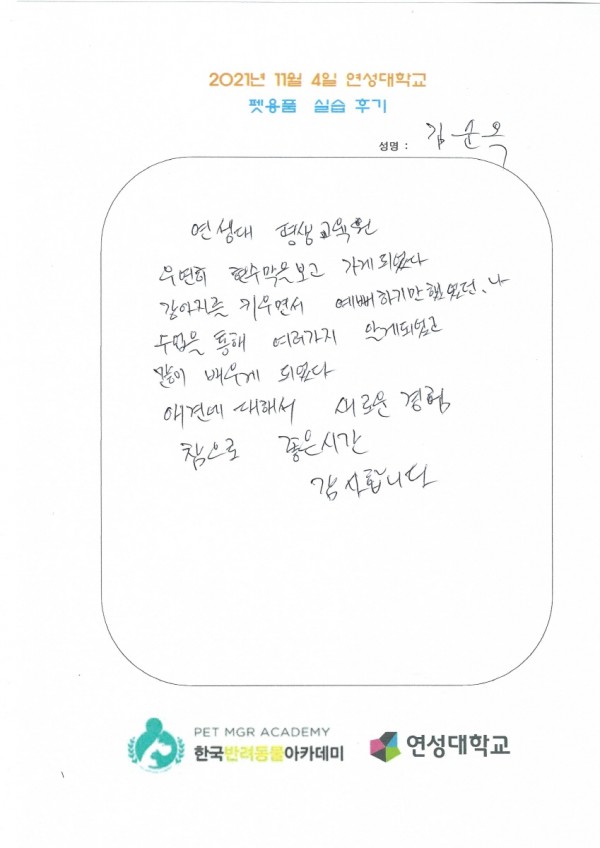 2021년 11월 4일 연성대학교
펫용품 실습 후기
성명 : 김순옥
연성대 평생교육원
우연히 현수막을보고 가게되었다
강아지를 키우면서 예뻐하기만했었던, 나
수업을 통해 여러가지 알게되었고
많이 배우게 되었다
애견에 대해서 새로운 경험
참으로 좋은시간
감사합니다
PET MGR ACADEMY
한국반려동물아카데미
연성대학교